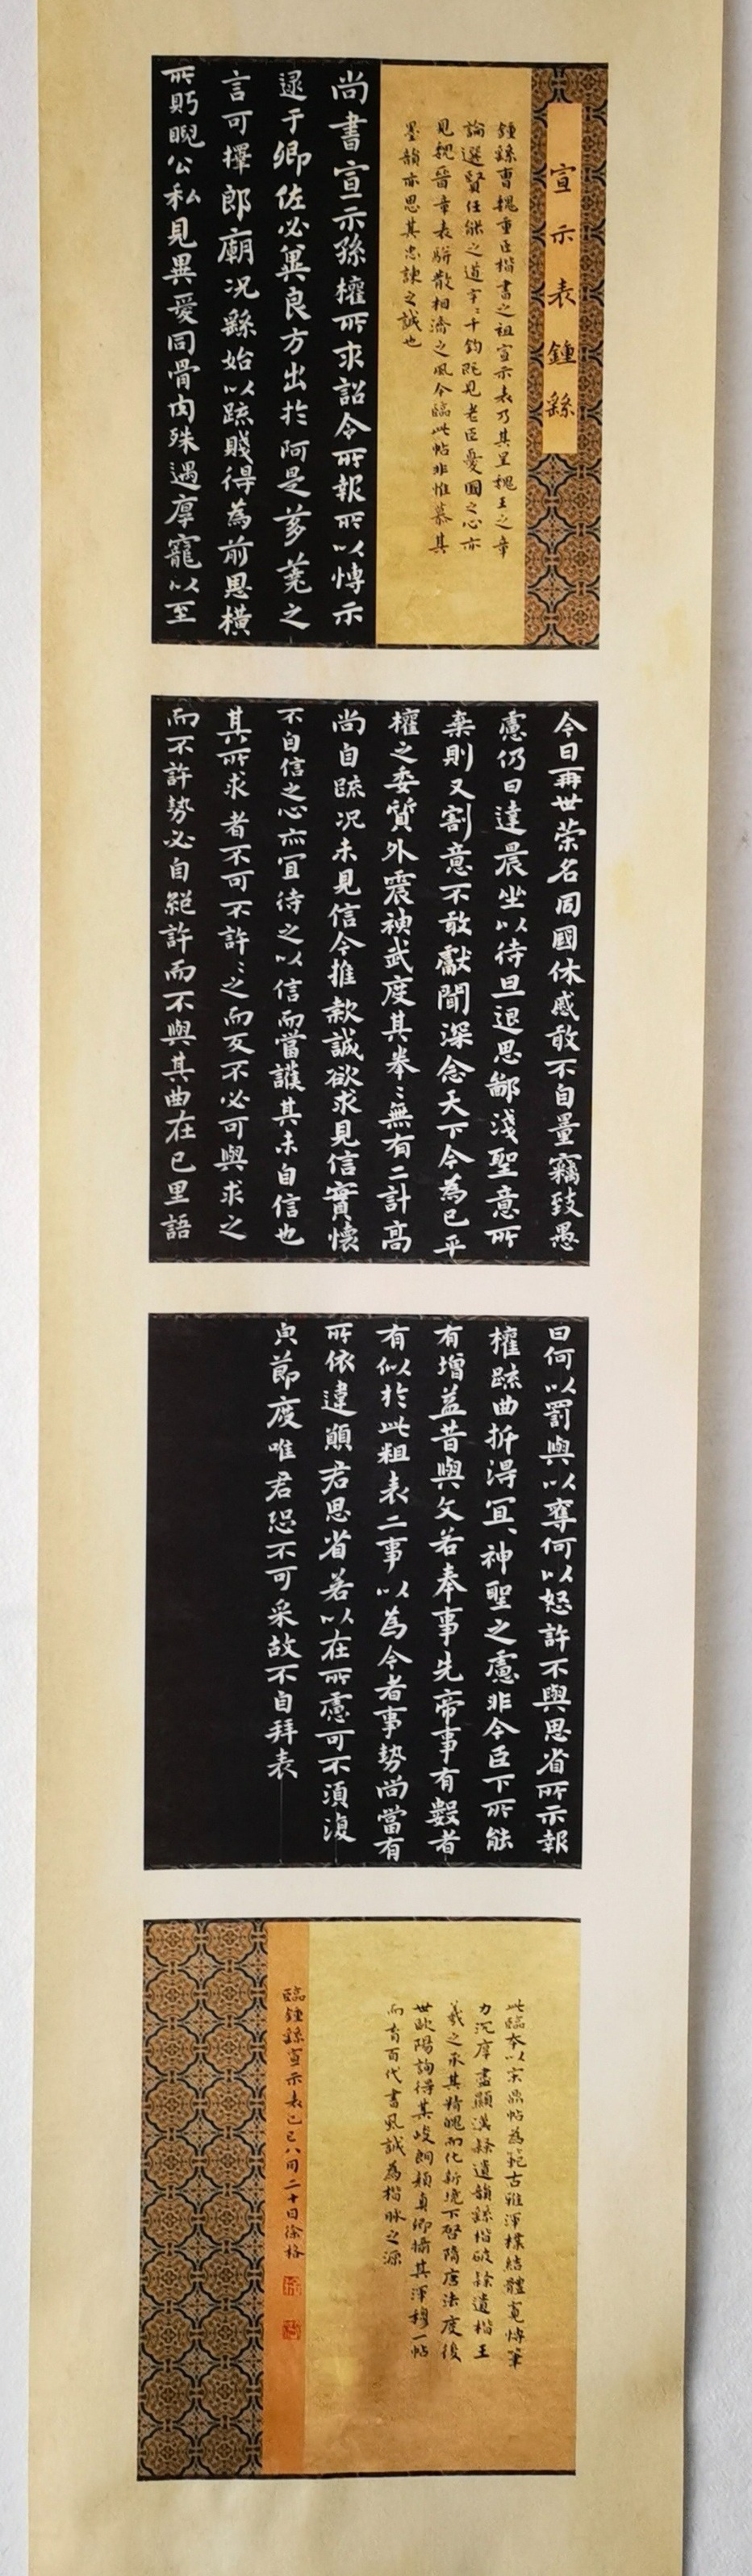 宣示表鍾繇
鍾繇曹魏重臣楷書之祖宣示表乃其呈魏王之章
論選賢任能之道字〻千鈞既見老臣憂國之心亦
見魏晉章表駢散相濟之風今臨此帖非惟慕其
墨韻亦思其忠諫之誠也
尚書宣示孫權所求詔令所報所以博示
逮于卿佐必冀良方出於阿是芻蕘之
言可擇郎廟況繇始以疏賤得為前恩橫
所眄睨公私見異愛同骨肉殊遇厚寵以至
今日再世榮名同國休慼敢不自量竊致愚
慮仍日達晨坐以待旦退思鄙淺聖意所
棄則又割意不敢獻聞深念天下今為已平
權之委質外震神武度其拳〻無有二計高
尚自疏況未見信今推款誠欲求見信實懷
不自信之心亦宜待之以信而當護其未自信也
其所求者不可不許〻之而反不必可與求之
而不許勢必自絕許而不與其曲在己里語
曰何以罰與以奪何以怒許不與思省所示報
權疏曲折得宜神聖之慮非今臣下所能
有增益昔與文若奉事先帝事有數者
有似於此粗表二事以為今者事勢尚當有
所依違願君思省若以在所慮可不須復
皃節度唯君恐不可采故不自拜表
此臨本以宋鼎帖為範古雅渾樸結體寬博筆
力沉厚盡顯漢隸遺韻繇楷破隸遺楷王
羲之承其精魄而化新境下啓隋唐法度後
世歐陽詢得其峻朗顏真卿攝其渾穆一帖
而育百代書風誠為楷脉之源
臨鍾繇宣示表乙巳八月二十日徐格